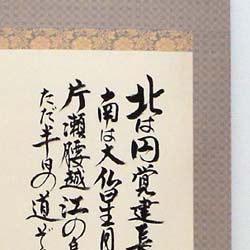 北は円覚建長
南は大仏星月
片瀬腰越江の島
ただ半日の道ぞ